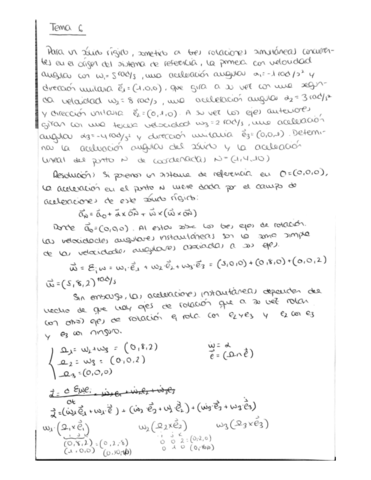 Tema 6
Para un sólido rígido, sometido a tres rotaciones simultáneas concurren-
tes en el origen del sistema de referencia, la primera con velocidad
angular con ω₁ = 5 rad/s, una aceleración angular α₁ = -1 rad/s² y
dirección unitaria ē₁ = (1,0,0), que gira a su vez con una segun-
da velocidad ω₂ = 8 rad/s, una aceleración angular α₂ = 3 rad/s²
y dirección unitaria ē₂ = (0,1,0). A su vez los ejes anteriores
giran con una velocidad ω₃ = 2 rad/s, una aceleración
angular α₃ = -4 rad/s² y dirección unitaria ē₃ = (0,0,1). Determi-
nar la aceleración angular del sólido y la aceleración
lineal del punto N de coordenadas N = (1,4,10)
Resolución: Si ponemos un sistema de referencia en O = (0,0,0),
la aceleración en el punto N viene dada por el campo de
aceleraciones de este sólido rígido:
a⃗N = a⃗o + α⃗ x ON + ω⃗ x (ω⃗ x ON)
Donde a⃗o = (0,0,0). Al estar sobre los tres ejes de rotación.
Las velocidades angulares instantáneas son la suma simple
de las velocidades angulares asociadas a su ejes
ω⃗ = Σᵢ ωᵢ = ω₁ e⃗₁ + ω₂ e⃗₂ + ω₃ e⃗₃ = (5,0,0) + (0,8,0) + (0,0,2)
ω⃗ = (5,8,2) rad/s
Sin embargo, las aceleraciones instantáneas dependen del
hecho de que hay ejes de rotación que a su vez rotan
con otros ejes de rotación e₁ rota con e₂ y e₃ y e₂ con e₃
y e₃ con ninguno.
Ω₁ = ω₂ + ω₃ = (0,8,2)
Ω₂ = ω₃ = (0,0,2)
Ω₃ = (0,0,0)
ω̇ = α
ė = (Ω x e⃗)
α⃗ = (ω̇₁ e⃗₁ + ω₁ ė) + (ω̇₂ e⃗₂ + ω₂ ė₂) + (ω̇₃ e⃗₃ + ω₃ ė₃)
ω₁ (Ω₁ x e⃗₁) ω₂ (Ω₂ x e⃗₂) ω₃ (Ω₃ x e⃗₃)